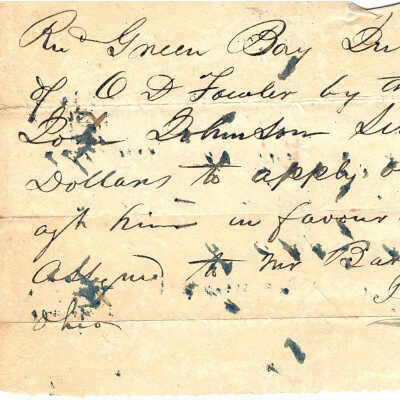 Rec^d Green Bay
of O D Fowler by
Johnson
Dollars to apply
agt him in favour
Assigned to Mr
Ohio